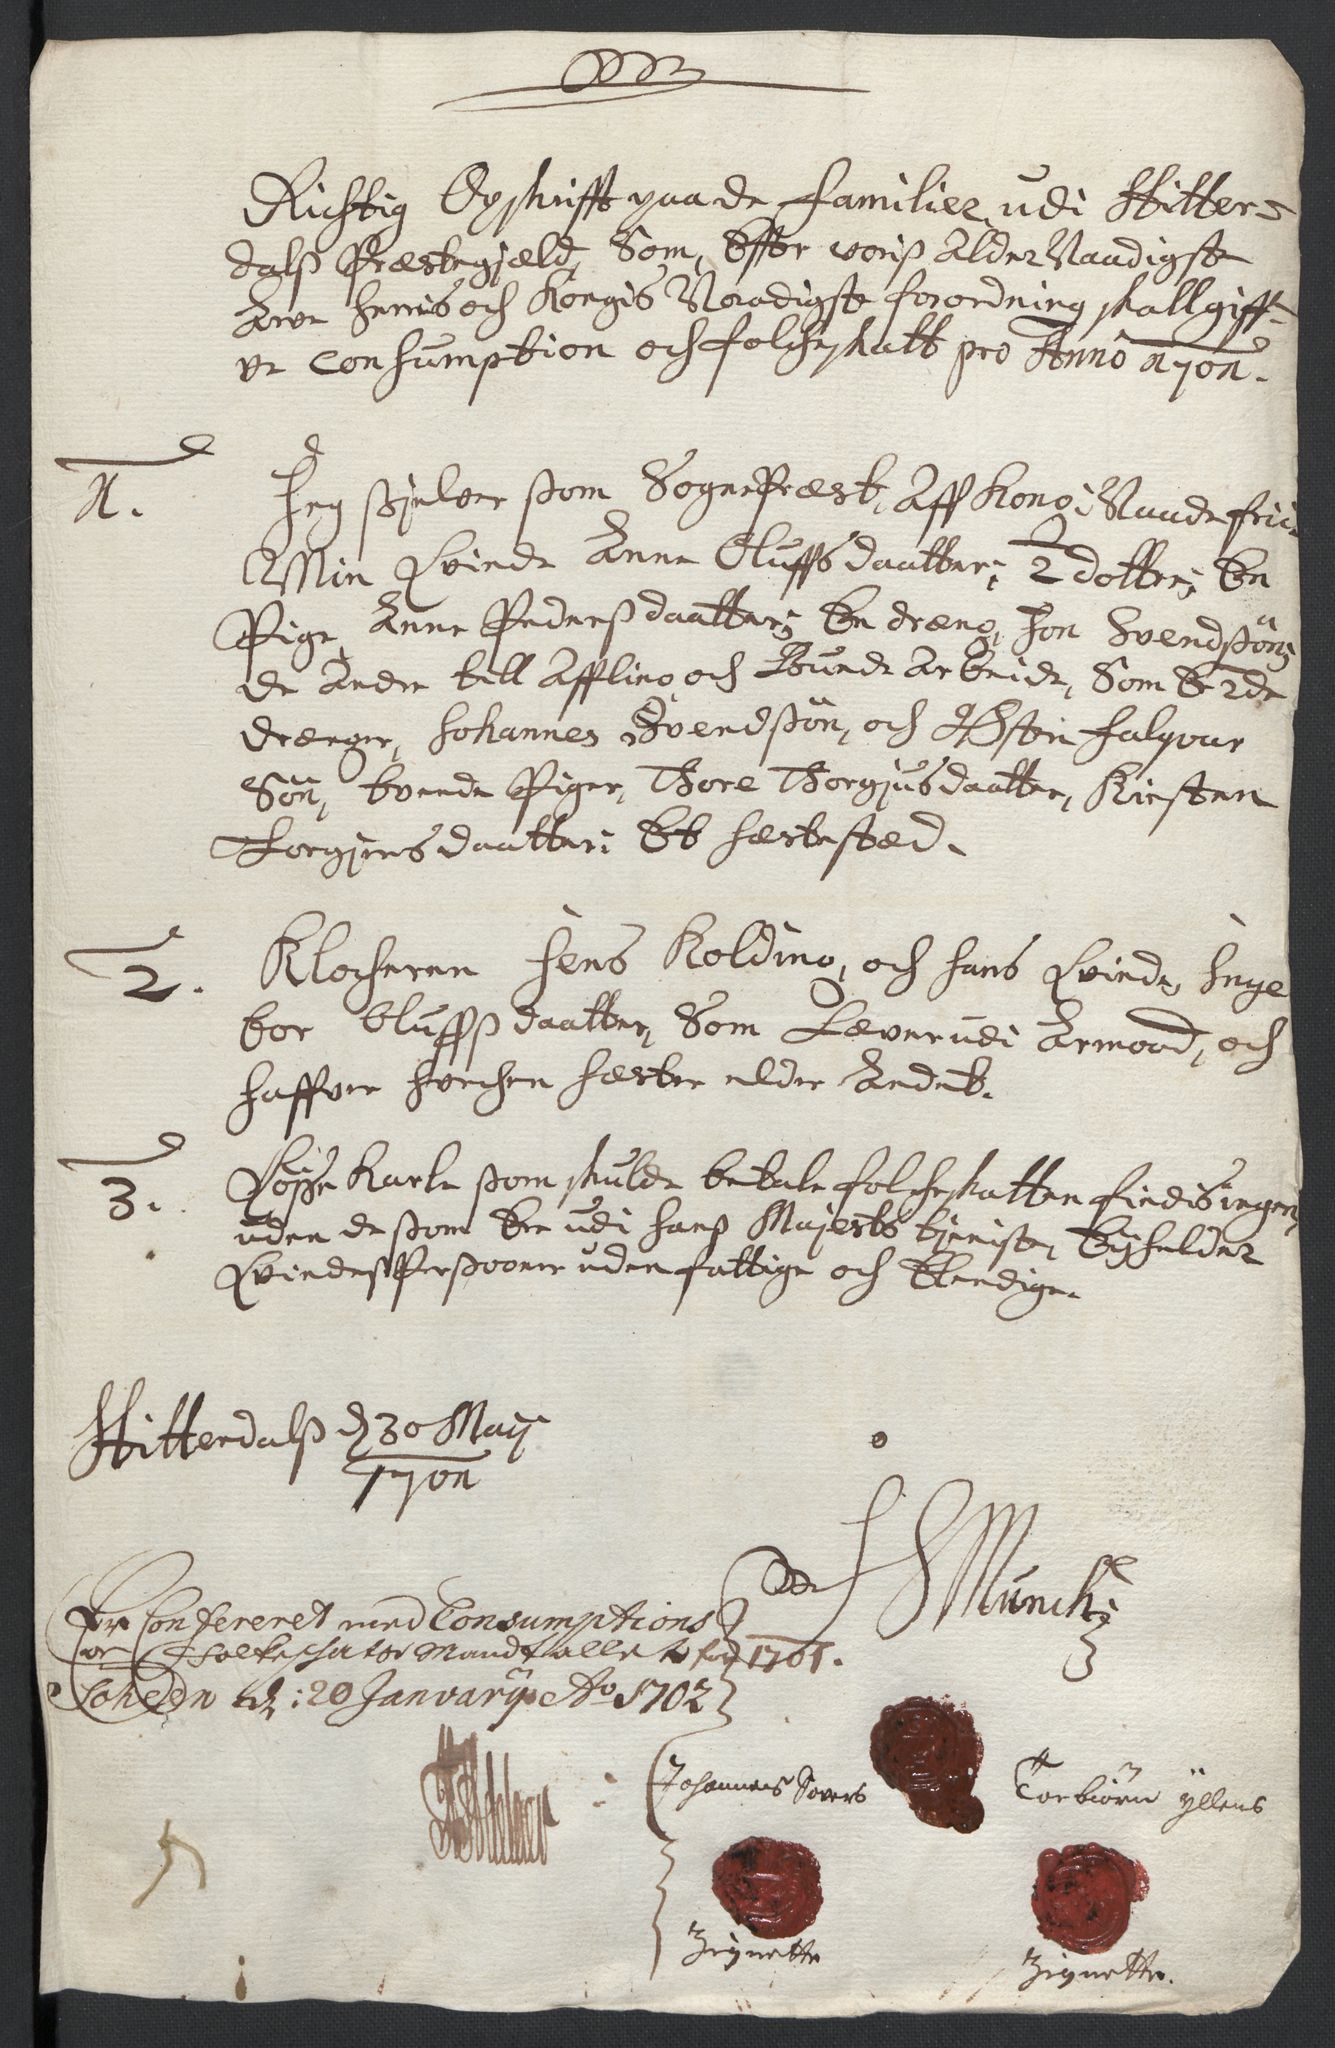 Richtig Opskrifft paa de familier udi Hitter-
dalß Præstegjæld, Som, Effter voriß AlderNaadigste
Arve Herris och Kongis Naadigste forordning skall giff-
ve Consumption och folcheskatt pro Anno 1701.
1.
Jeg sjelver som SognePræst, Aff Kong: Naade frii
Min Qvinde Anne Oluffsdaatter; 2 døtter; En
Pige, Anne Pederßdaatter; En dreng, Jon Svendßøn;
de Andre till Affling och Bunde Arbeide, Som Er 2de
drenger, Johannes Svendßøn, och Østen Halqvar
Søn, tvende Piger, Thore Thorgjusdaatter, Kirsten
Torgjusdaatter; Et hæstested.
2.
Klocheren Jens Kolding, och hans Qvinde, Inge
bor Oluffßdaatter, Som Lever udi Armood, och
haffver hverchen hæster eller Andet.
3.
Løsse Karle som skulde betale folcheskatten findis ingen,
uden de som Er udi hanß Majests tjeniste, Ey heller
Qvindesßpersooner uden fattige och Elendige.
Hitterdalß d 30 Maij
1701
H Munch
Confereret med Consumptions
og Folkeschatts Mandtallet for 1701.
Scheen d: 20 January Ao 1702
Johannes Sovers
Torbiörn Yllens
Zignette
Zignette.